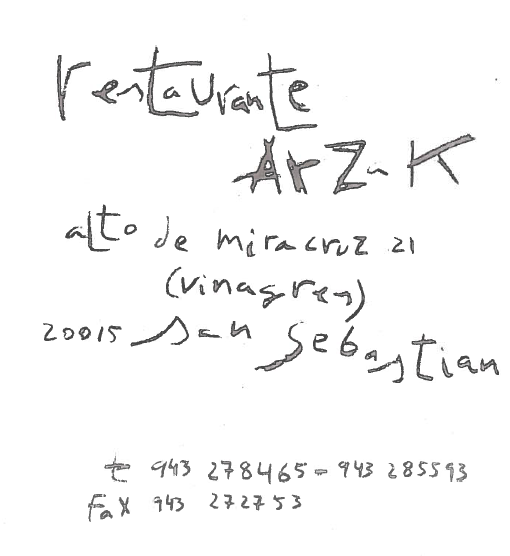 restaurante
ArZaK
alto de miracruz 21
(vinagres)
20015 san Sebastian
t 943 278465 - 943 285593
Fax 943 272753